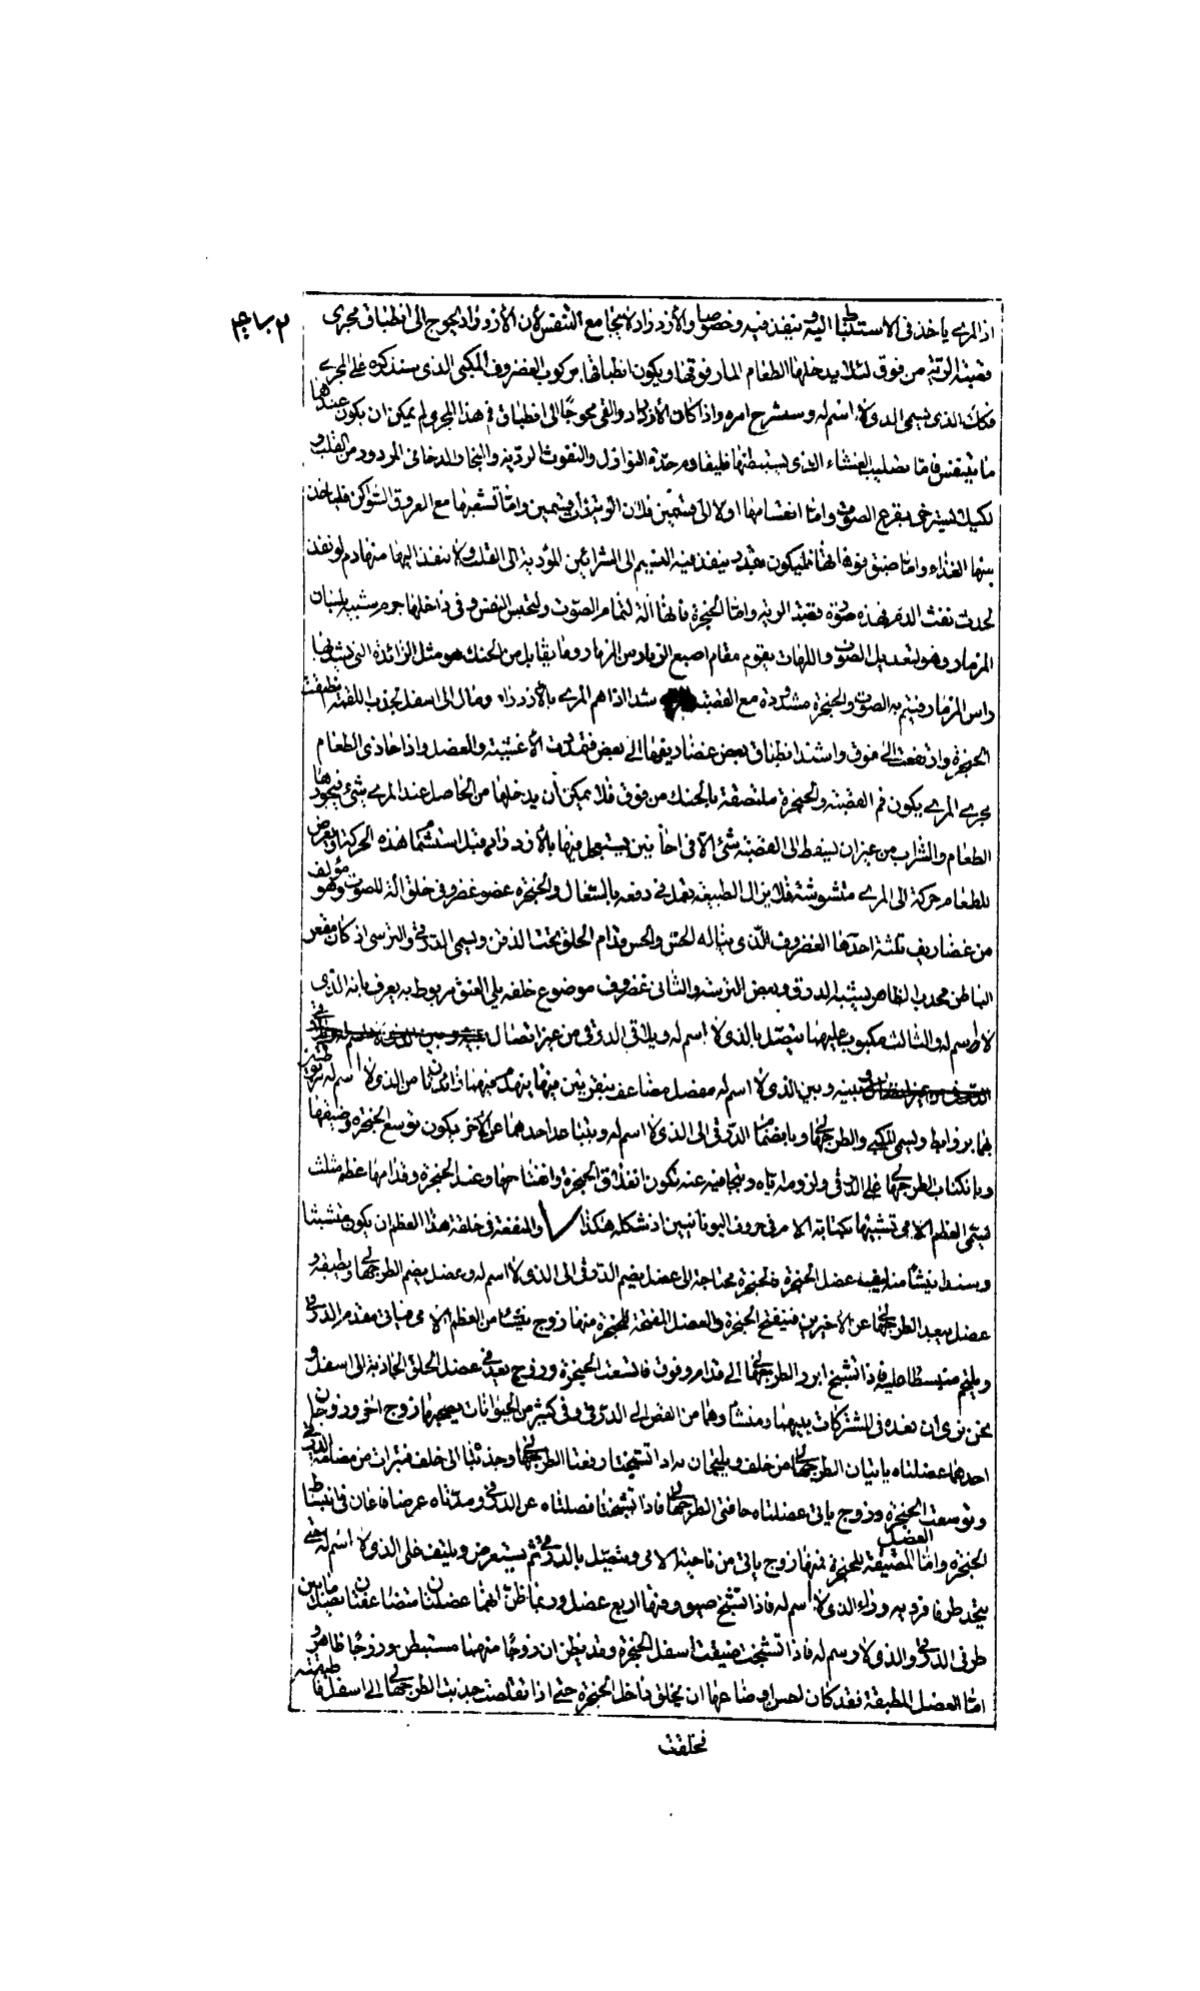 اذ المرى ياخذ فى الاستنباط اليه وينفذ فيه وخصوصا والأزدراد لا يجامع التنفس لأن الأزدراد يحوج الى انطباق مجرى
قصبة الرئة من فوق لئلا يدخلها الطعام المار فوقها ويكون انطباقها بركوب الغضروف المكبى الذى سنذكره على المجرى
فكك الذى يسمى الذى لا اسم له وسنشرح امره واذا كان الأزدراد والقى محوجًا الى انطباق فم هذا المجرى لم يمكن ان يكون عندها
ما يتنفس فاما تصليب الغشاء الذى يستبطنها فليقاوم حدة النوازل والنفوث الردية والبخار الدخانى المردود من القلب و
لكيلا يسترخى بقرع الصوت واما انقسامها اولا الى قسمين فلان الرئة ذات قسمين واما تشعبها مع العروق السواكن فلياخذ
منها الغذاء واما ضيق فوهاتها فليكون بقدر ينفذ فيه النسيم الى الشرائين المؤدية الى القلب ولا ينفذ اليها منها دم لو نفذ
لحدث نفث الدم فهذه صورة قصبة الرئة واما الحنجرة فانها آلة لتمام الصوت ولتحبس النفس وفى داخلها جرم شبيه بلسان
المزمار وهو لتعديل الصوت واللهات يقوم مقام اصبع الزمار من المزمار وما يقابل من الحنك هو مثل الزائدة التى يشد بها
راس المزمار فيتم به الصوت والحنجرة مشدودة مع القصبة شدا اذا هم المرى بالازدراد ومال الى اسفل لجذب اللقمة انطبقت
الحنجرة وارتفعت الى فوق واشتد انطباق بعض غضاريفها الى بعض فتمددت الأغشية والعضل واذا حاذى الطعام
مجرى المرى يكون فم القصبة والحنجرة ملتصقة بالحنك من فوق فلا يمكن أن يدخلها من الحاصل عند المرى شىء فيجوزها
الطعام والشراب من غير ان يسقط الى القصبة شئ الا فى احايين يستعجل فيها بالازدراد قبل استتمام هذه الحركة او يعرض
للطعام حركة الى المرى متشوشة فلا يزال الطبيعة تعمل فى دفعه بالسعال والحنجرة عضو غضروفى خلق الة للصوت وهو مؤلف
من غضاريف ثلثة احدها الغضروف الذى يناله الحس والجس قدام الحلق تحت الذقن ويسمى الدرقى والترسى اذ كان مقعر
الباطن محدب الظاهر يشبه الدرقة وبعض الترسة والثانى غضروف موضوع خلفه يلى العنق مربوط به يعرف بانه الذى
لا اسم له والثالث مكبوب عليهما يتصل بالذى لا اسم له ويلاقى الدرقى من غير اتصال
وبينه وبين الذى لا اسم له مفصل مضاعف بنقرتين فيها يتهندم فيهما زائدتان من الذى لا اسم له مربوطتين
بهما بروابط ويسمى المكبى والطرجهالى وبانضمام الدرقى الى الذى لا اسم له وبتباعد احدهما عن الآخر يكون توسع الحنجرة وضيقها
وبانكباب الطرجهالى على الدرقى ولزومه اياه وبتجافيه عنه تكون انغلاق الحنجرة وانفتاحها وعند الحنجرة وقدامها عظم مثلث
يسمى العظم اللامى تشبيها بكتابة اللام فى حروف اليونانيين اذ شكله هكذا والمنفعة فى خلقة هذا العظم ان يكون متشبثا
وسندا ينشأ منه ليف عضل الحنجرة فالحنجرة محتاجة الى عضل يضم الدرقى الى الذى لا اسم له وعضل يضم الطرجهالى ويطبقه و
عضل يبعد الطرجهالى عن الأخيرين فينفتح الحنجرة والعضل المفتحة للحنجرة منها زوج ينشأ من العظم اللامى فياتى مقدم الدرقى
ويلتحم منبسطا عليه فاذا تشنج ابرز الطرجهالى الى قدام وفوق فاتسعت الحنجرة وزوج يعد فى عضل الحلق الجاذبة الى اسفل و
نحن نرى ان نعده فى المشتركات بينهما ومنشأوهما من القص الى الدرقى وفى كثير من الحيوانات يصحبهما زوج اخر وزوجان
احدهما عضلتاه ياتيان الطرجهالى من خلف ويلتحمان به اذا تشنجتا رفعتا الطرجهالى وجذبتاه الى خلف فتبرات من مضامة الدرقى
وتوسعت الحنجرة وزوج ياتى عضلتاه حافتى الطرجهالى فاذا تشنجتا فصلتاه عن الدرقى ومدتاه عرضا فاعان فى انبساط
الحنجرة واما العضل المضيقة للحنجرة فمنها زوج ياتى من ناحية اللامى ويتصل بالدرقى ثم يستعرض ويلتف على الذى لا اسم له حتى
يتحد طرفا فرديه وراء الذى لا اسم له فاذا تشنج ضيق ومنها اربع عضل وربما ظن انهما عضلتان مضاعفتان يصل ما بين
طرفى الدرقى والذى لا اسم له فاذا تشنجت ضيقت اسفل الحنجرة وقد يظن ان زوجًا منهما مستبطن وزوجًا ظاهر و
اما العضل المطبقة فقد كان احسن اوضاعها ان يخلق داخل الحنجرة حتى اذا تقلصت جذبت الطرجهالى الى اسفل فاطبقته
فخلقت